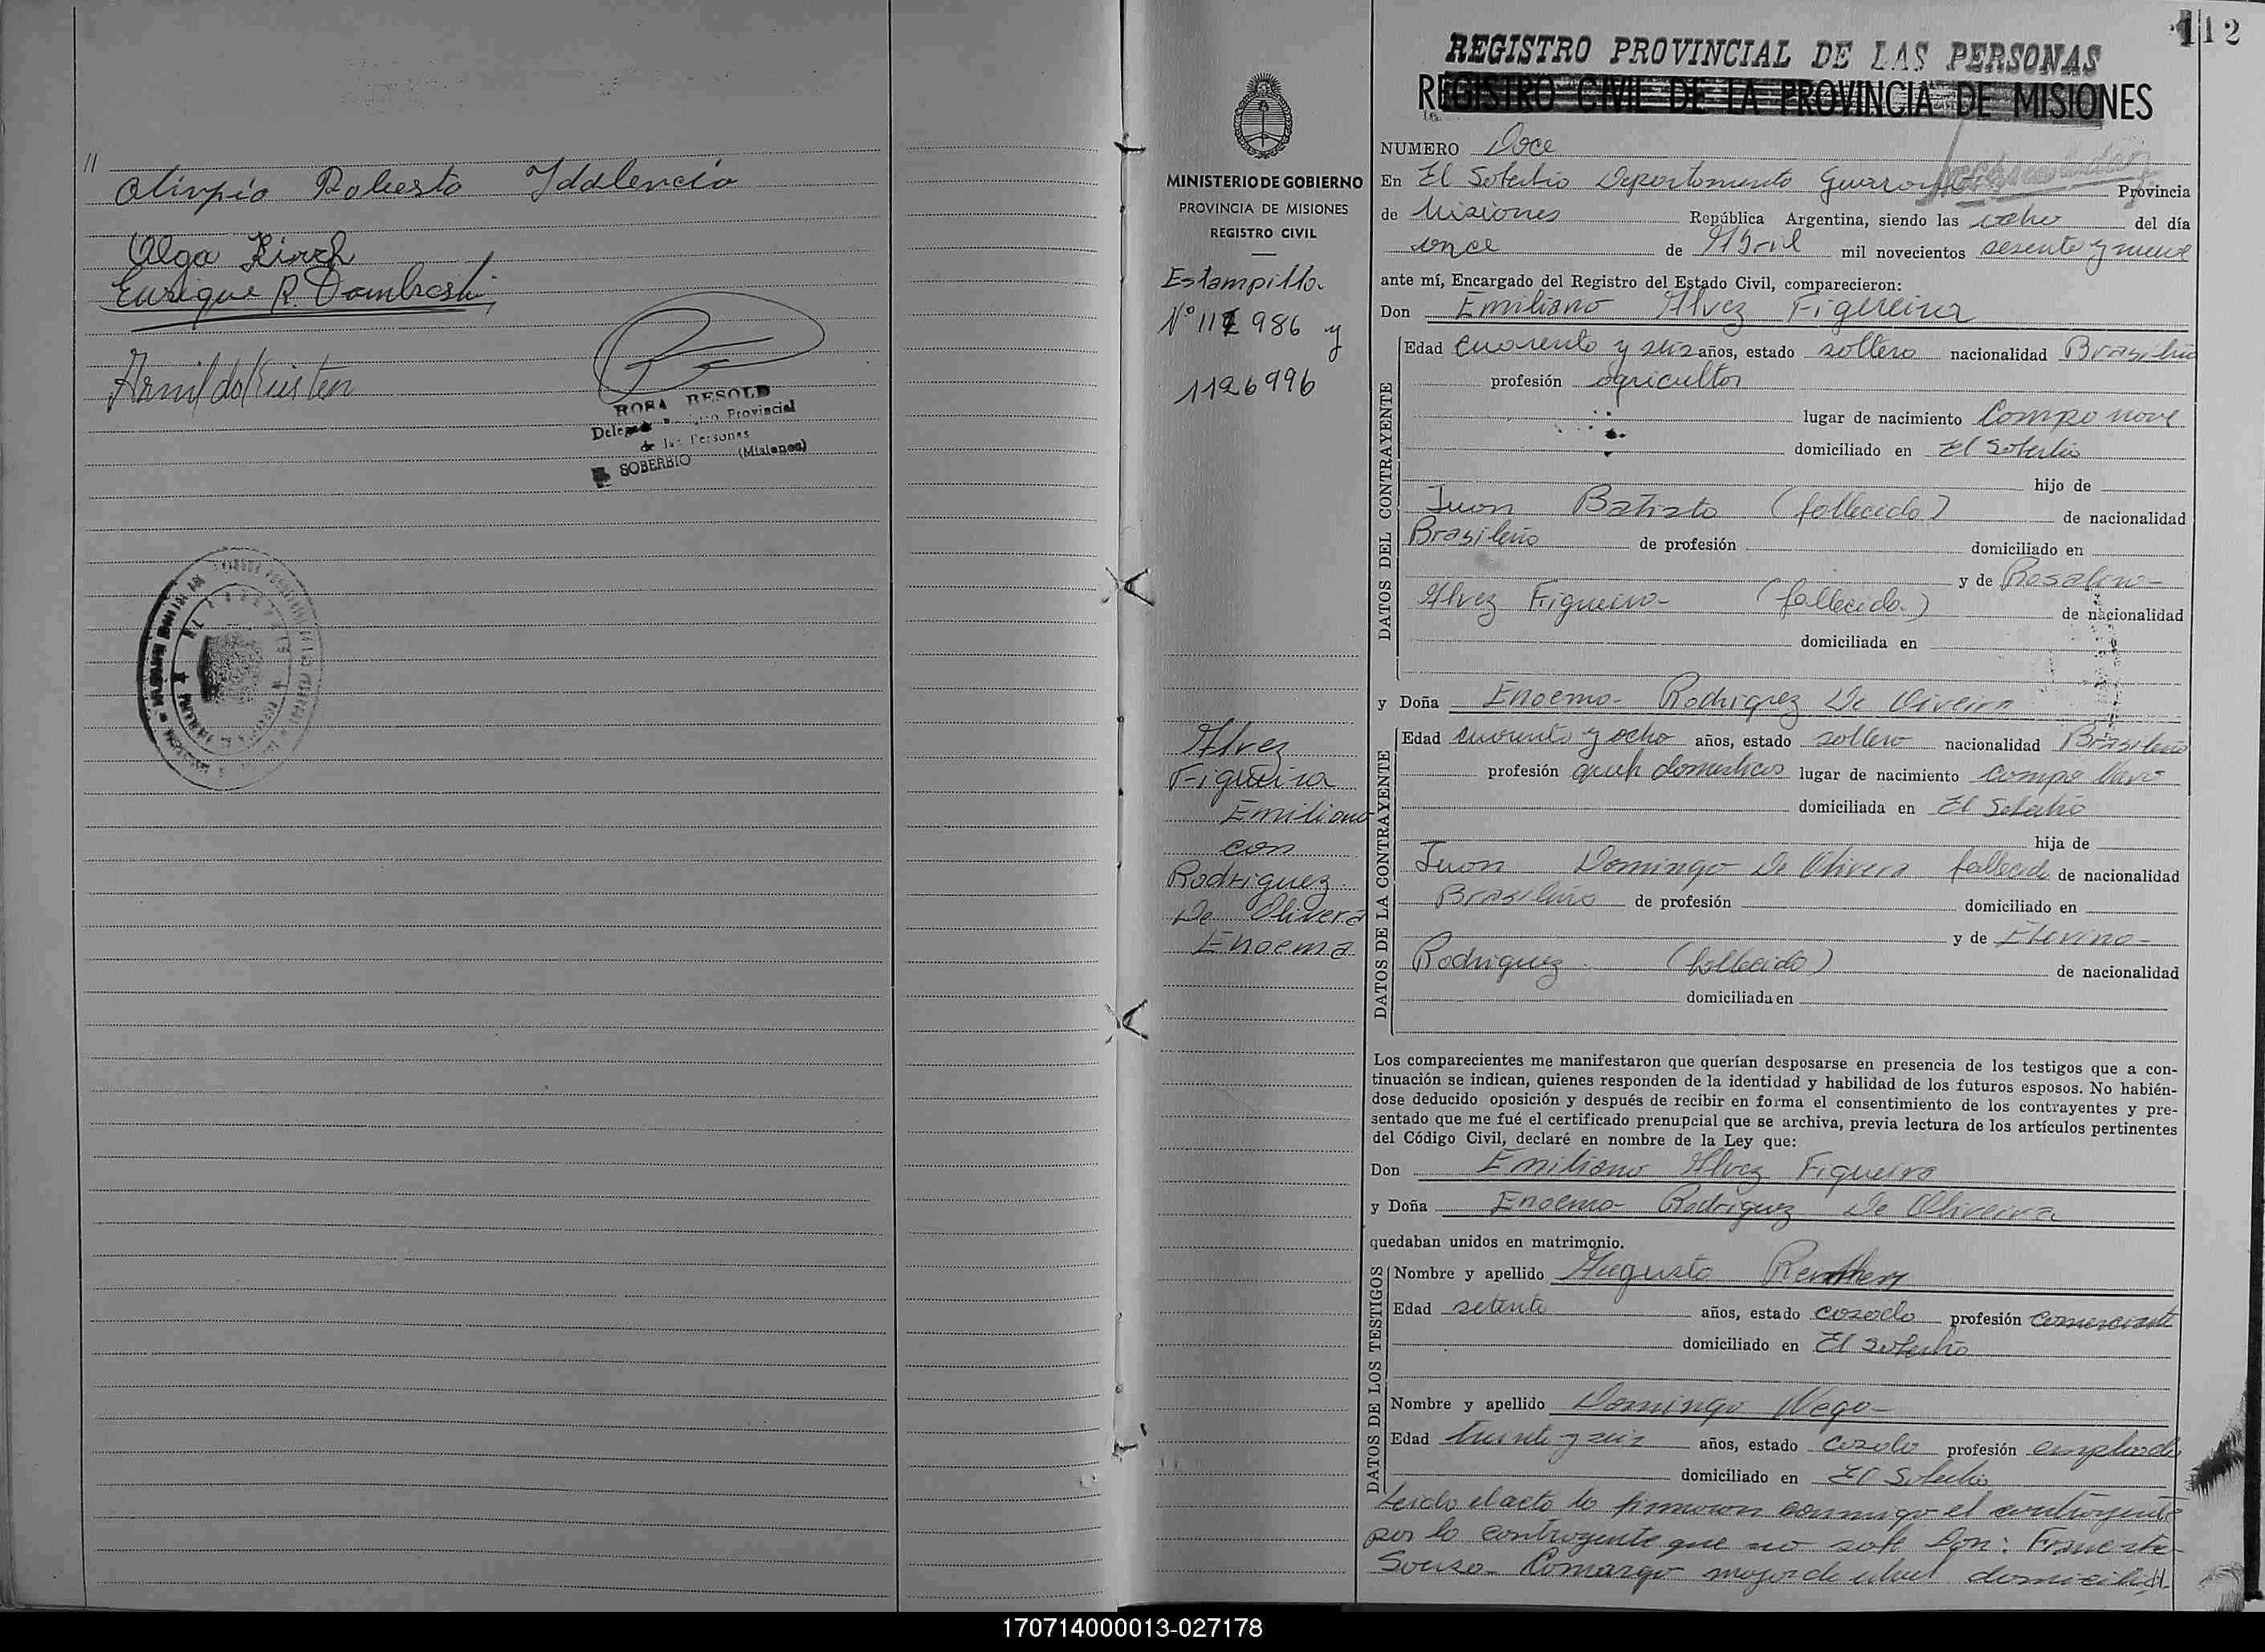 11
Olimpio Roberto Idalencio
Olga Kirch
Enrique R. Dombroski
Arnildo Kusten
ROSA RESOLD
Provincial
de las Personas
SOBERBIO (Misiones)
112
REGISTRO PROVINCIAL DE LAS PERSONAS
REGISTRO CIVIL DE LA PROVINCIA DE MISIONES
MINISTERIO DE GOBIERNO
PROVINCIA DE MISIONES
REGISTRO CIVIL
Estampilla
y
1126996
Alvez
Figueira
Emiliano
con
Rodriguez
De Olivera
Enoema
NUMERO Doce
En El Soberbio Departamento Guaraní Provincia
de Misiones República Argentina, siendo las ocho del día
once de Abril mil novecientos sesenta y nueve
ante mí, Encargado del Registro del Estado Civil, comparecieron:
Don Emiliano Alvez Figereira
DATOS DEL CONTRAYENTE
Edad cuarenta y seis años, estado soltero nacionalidad Brasileño
profesión agricultor
lugar de nacimiento Campo nove
domiciliado en El Soberbio
hijo de
Juan Batista (fallecido) de nacionalidad
Brasileño de profesión domiciliado en
y de Rosalina
Alvez Figueira (fallecida) de nacionalidad
domiciliada en
y Doña Enoema Rodriguez De Oliveira
DATOS DE LA CONTRAYENTE
Edad cuarenta y ocho años, estado soltera nacionalidad Brasileña
profesión queh domesticos lugar de nacimiento Campo Novo
domiciliada en El Soberbio
hija de
Juan Domingo De Olivera fallecido de nacionalidad
Brasileño de profesión domiciliado en
y de Etelvina
Rodriguez (fallecida) de nacionalidad
domiciliada en
Los comparecientes me manifestaron que querían desposarse en presencia de los testigos que a con-
tinuación se indican, quienes responden de la identidad y habilidad de los futuros esposos. No habién-
dose deducido oposición y después de recibir en forma el consentimiento de los contrayentes y pre-
sentado que me fué el certificado prenupcial que se archiva, previa lectura de los artículos pertinentes
del Código Civil, declaré en nombre de la Ley que:
Don Emiliano Alvez Figueira
y Doña Enoema Rodriguez De Oliveira
quedaban unidos en matrimonio.
DATOS DE LOS TESTIGOS
Nombre y apellido Augusto
Edad setenta años, estado casado profesión comerciante
domiciliado en El Soberbio
Nombre y apellido Domingo Vega
Edad treinta y seis años, estado casado profesión empleado
domiciliado en El Soberbio
Leida el acta la firmaron conmigo el contrayente
por la contrayente que no sabe Don:
Souza Camargo mayor de edad domiciliad
170714000013-027178